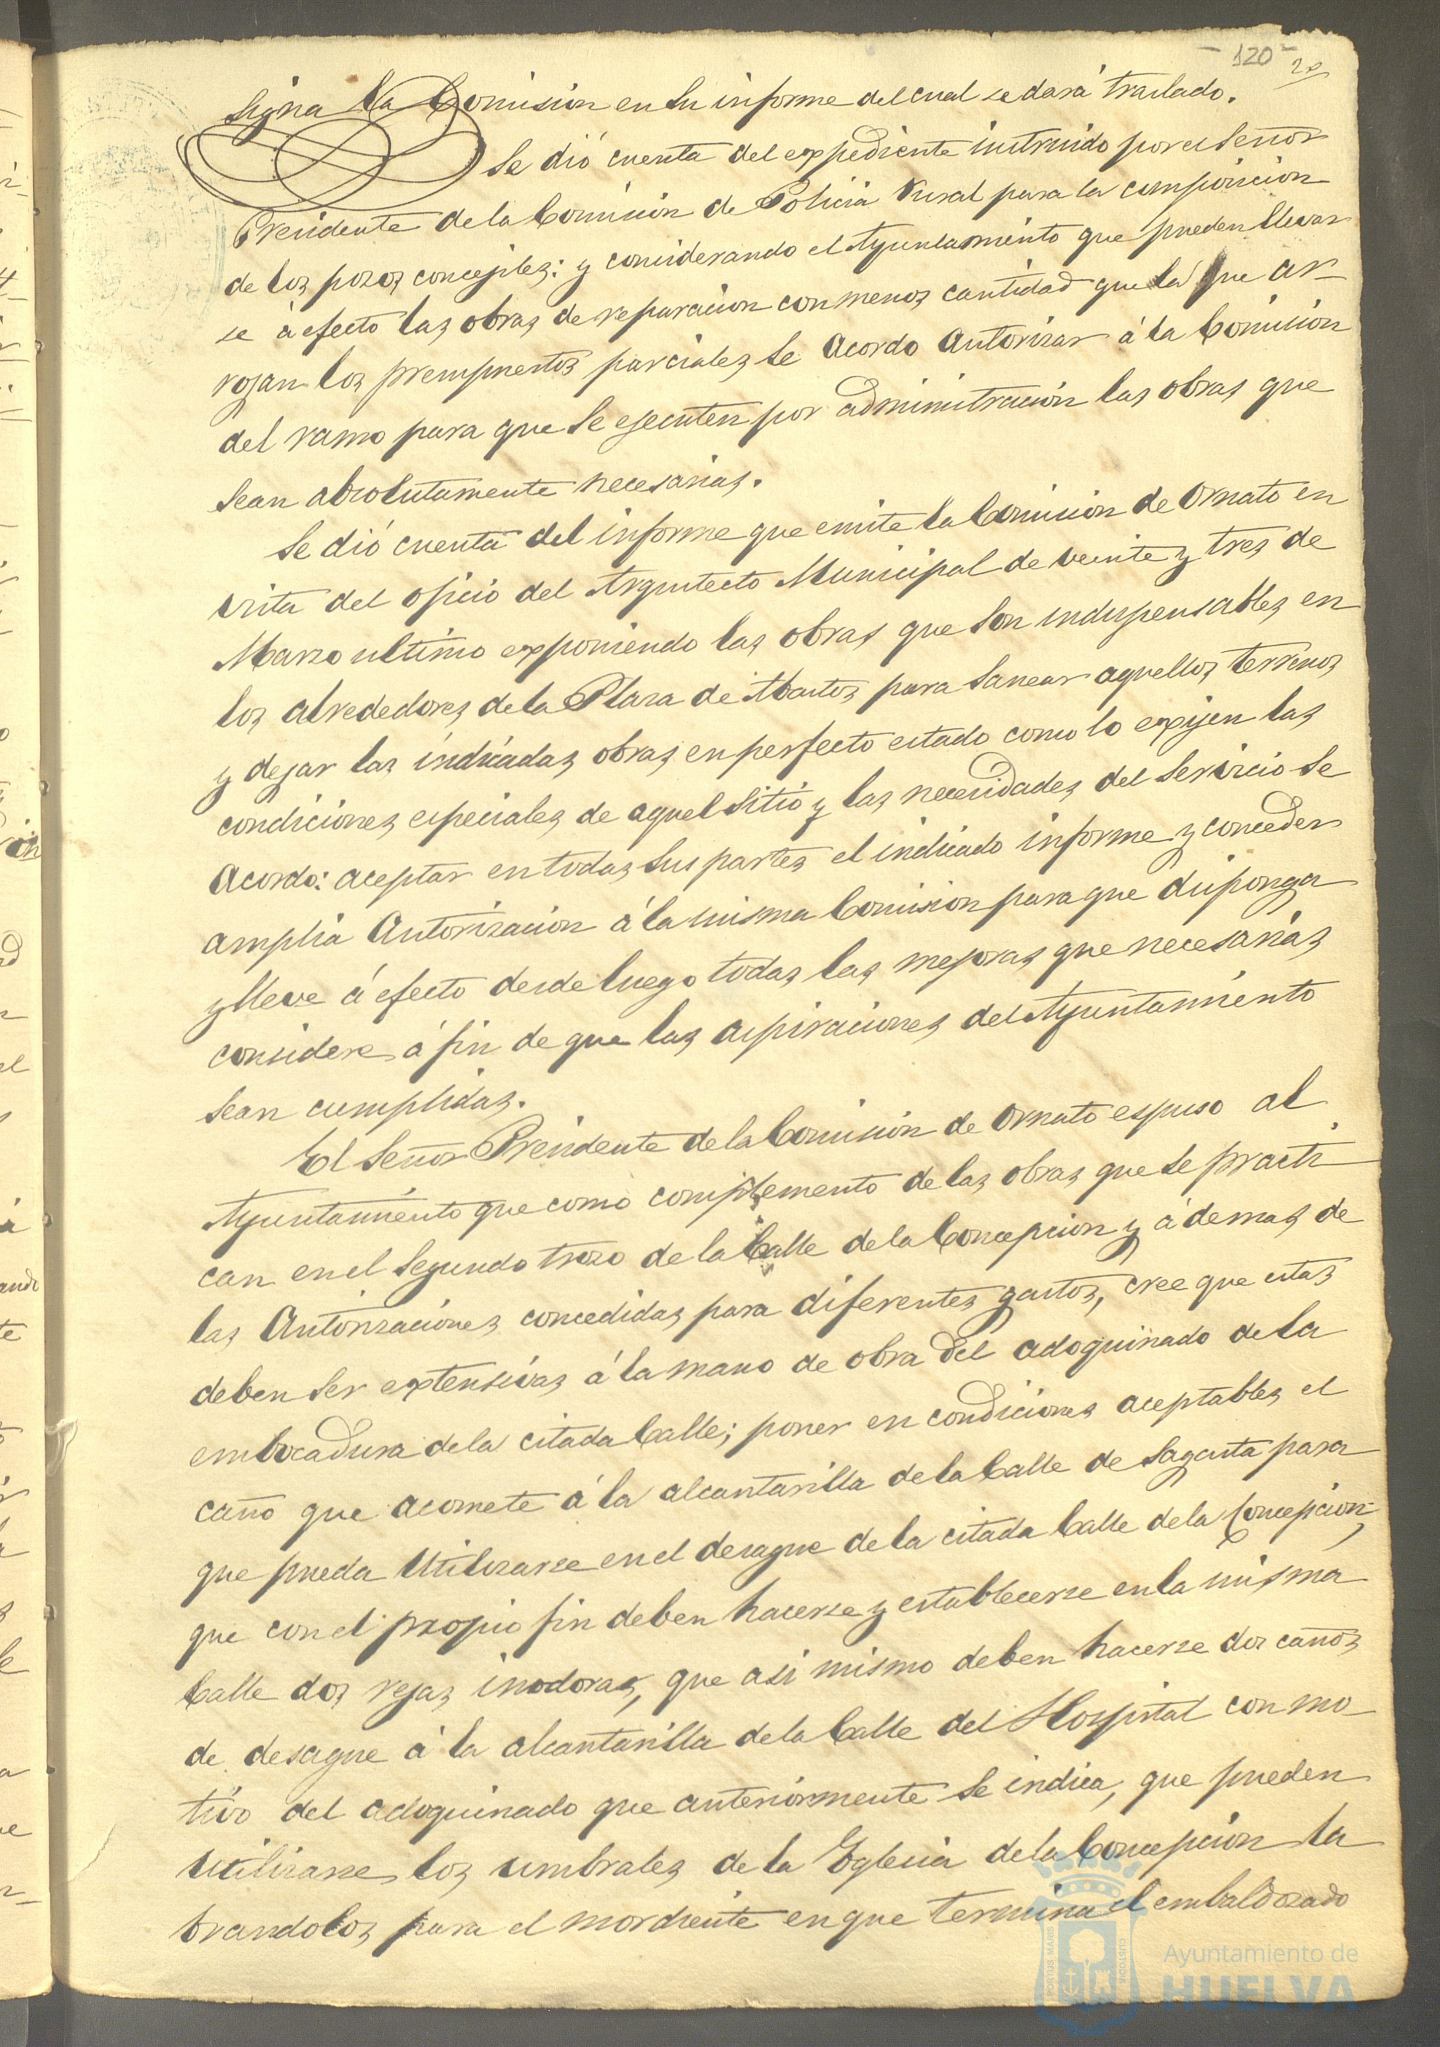 -120-
20
signa la Comisión en su informe del cual se dará traslado.
Se dió cuenta del expediente instruido por el Señor
Presidente de la Comisión de Policia Rural para la composicion
de los pozos concejiles: y considerando el Ayuntamiento que pueden llevar
se á efecto las obras de reparacion con menos cantidad que la que ar-
rojan los presupuestos parciales se Acordo Autorizar á la Comision
del ramo para que se ejecuten por administración las obras que
sean absolutamente necesarias.
Se dió cuenta del informe que emite la Comisión de Ornato en
vista del oficio del Arquitecto Municipal de veinte y tres de
Marzo ultimo exponiendo las obras que son indispensables en
los alrededores de la Plaza de Abastos para sanear aquellos terrenos
y dejar las indicadas obras en perfecto estado como lo exijen las
condiciones especiales de aquel sitio y las necesidades del servicio se
Acordo: aceptar en todas sus partes el indicado informe y conceder
amplia Autorizacion á la misma Comision para que disponga
y lleve á efecto desde luego todas las mejoras que necesarias
considere á fin de que las aspiraciones del Ayuntamiento
sean cumplidas.
El Señor Presidente de la Comisión de Ornato espuso al
Ayuntamiento que como complemento de las obras que se practi
can en el segundo trozo de la Calle de la Concepcion y ádemas de
las Autorizaciones concedidas para diferentes gastos, cree que estas
deben ser extensivas á la mano de obra del adoquinado de la
embocadura de la citada Calle; poner en condiciones aceptables el
caño que acomete á la alcantarilla de la Calle de Sagasta para
que pueda utilizarse en el desague de la citada Calle de la Concepcion,
que con el propio fin deben hacerse y establecerse en la misma
Calle dos rejas inodoras, que asi mismo deben hacerse dos caños
de desague á la alcantarilla de la Calle del Hospital con mo
tivo del adoquinado que anteriormente se indica, que pueden
utilizarse los umbrales de la Yglesia de la Concepción la
brandolos para el mordiente en que termina el embaldozado
Ayuntamiento de
HUELVA